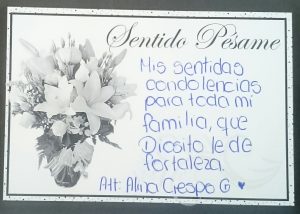 Sentido Pésame
Mis sentidas
condolencias
para toda mi
familia, que
Diosito le de
fortaleza.
Att: Alina Crespo G ♥